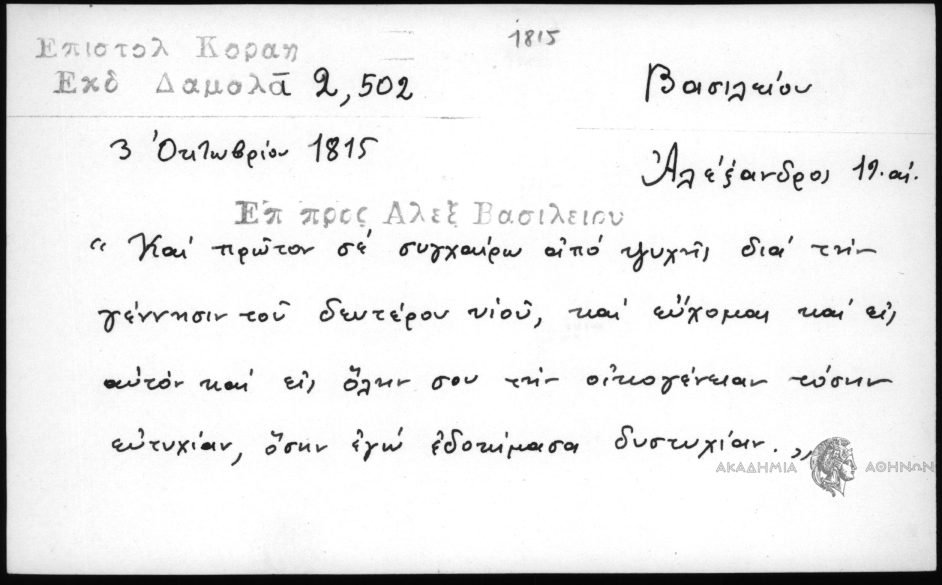 1815
Επιστολ Κοραη
Εκδ Δαμαλᾶ 2,502
Βασιλείου
3 Ὀκτωβρίου 1815
Ἀλέξανδρος 19. αἰ.
Επ προς Αλεξ Βασιλειου
“ Καί πρῶτον σέ συγχαίρω ἀπό ψυχῆς διά τήν
γέννησιν τοῦ δευτέρου υἱοῦ, καί εὔχομαι καί εἰς
αὐτόν καί εἰς ὅλην σου τήν οἰκογένειαν τόσην
εὐτυχίαν, ὅσην ἐγώ ἐδοκίμασα δυστυχίαν. „
ΑΚΑΔΗΜΙΑ ΑΘΗΝΩΝ